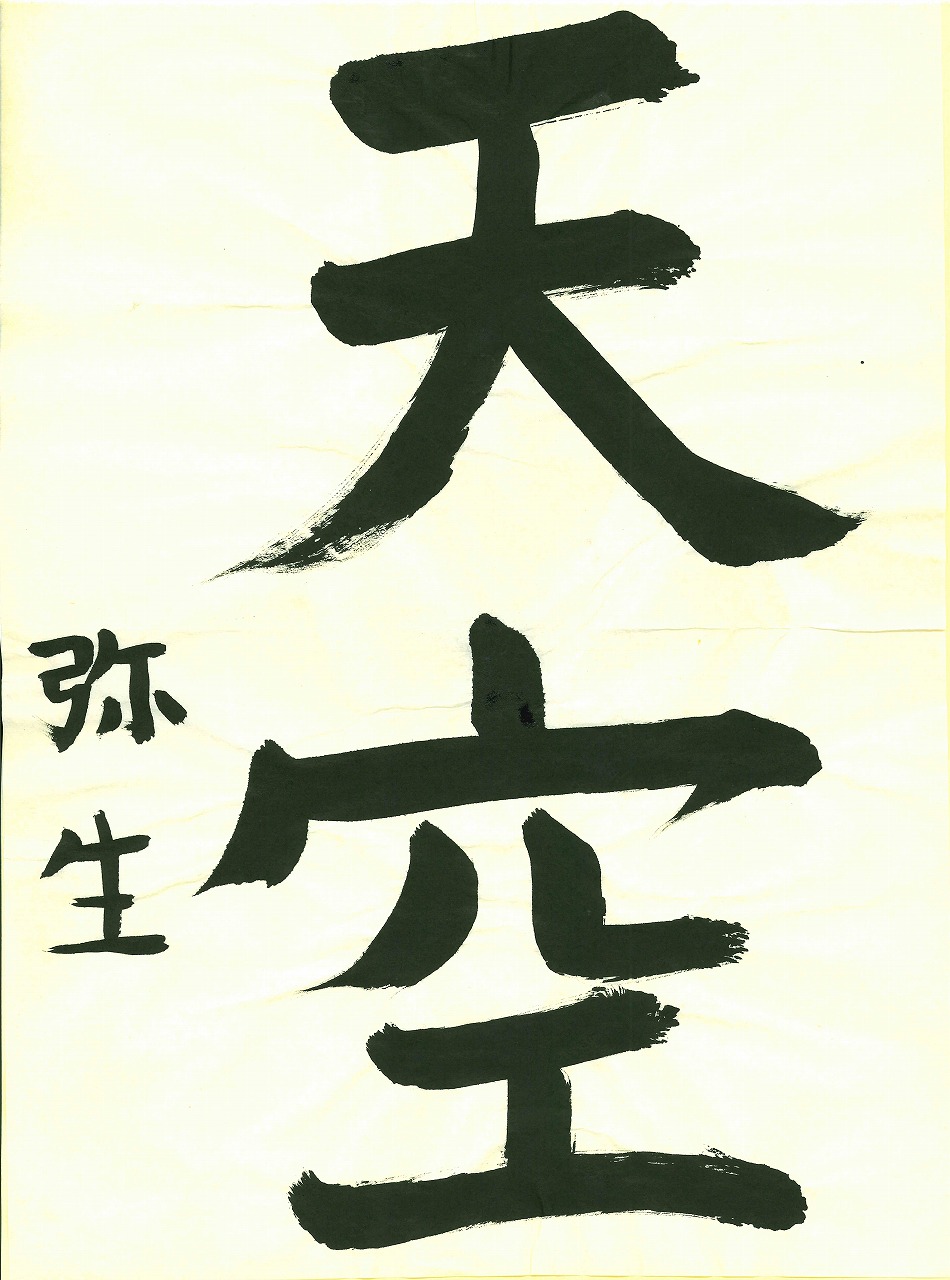 天空
弥生